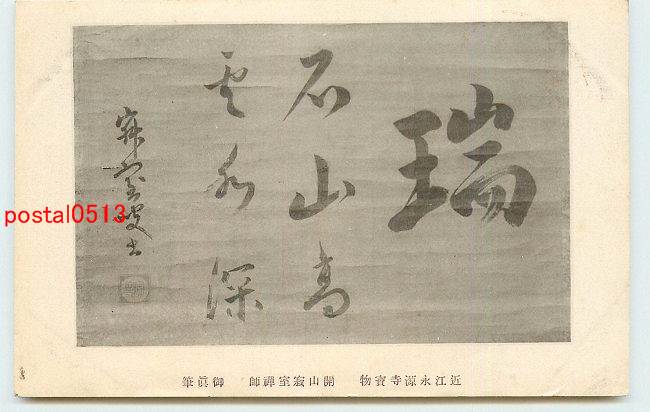 瑞
石山高
雲水深
寂室叟書
近江永源寺寳物 開山寂室禪師 御眞筆
postal0513